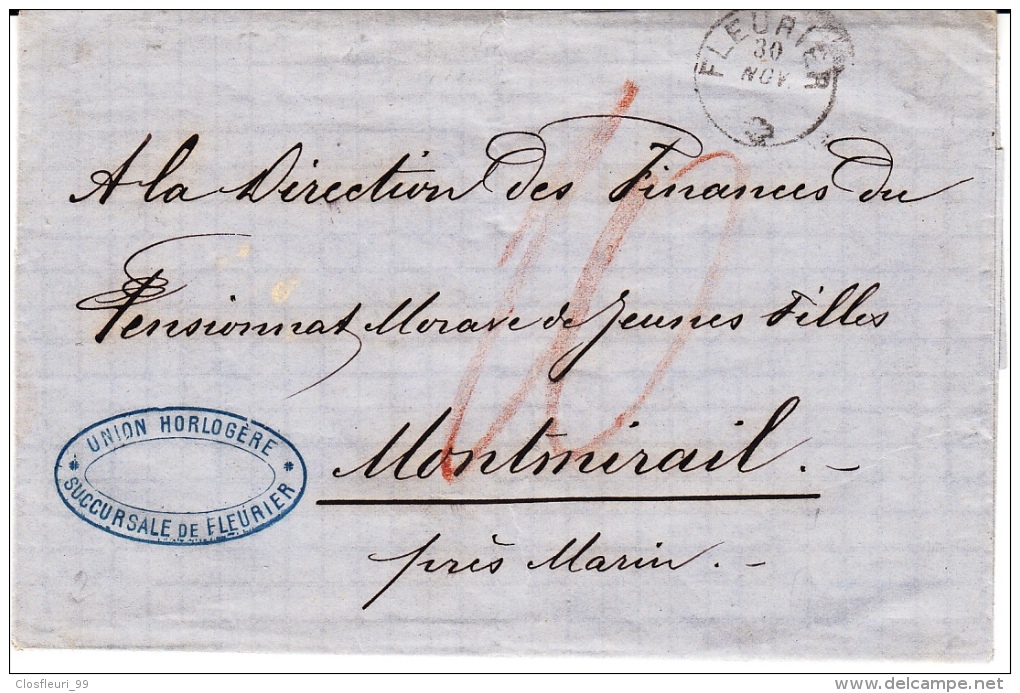 FLEURIER
30
NOV.
10
A la Direction des Finances du
Pensionnat Morave de Jeunes Filles
Montmirail.-
près Marin.-
* UNION HORLOGÈRE *
SUCCURSALE DE FLEURIER
Closfleuri_99
delcampe.net